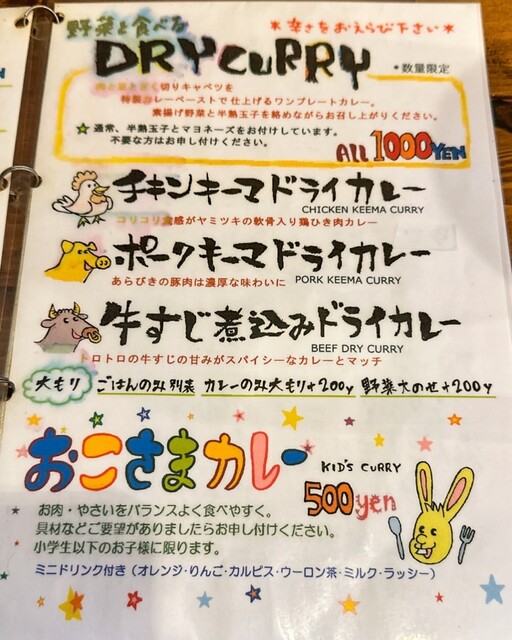 野菜と食べる
*辛さをおえらび下さい*
DRY CURRY
*数量限定
切りキャベツを
特製カレーペーストで仕上げるワンプレートカレー。
素揚げ野菜と半熟玉子を絡めながらお召し上がりください。
☆通常、半熟玉子とマヨネーズをお付けしています。
不要な方はお申し付けください。
ALL 1000YEN
チキンキーマドライカレー
CHICKEN KEEMA CURRY
コリコリ食感がヤミツキの軟骨入り鶏ひき肉カレー
ポークキーマドライカレー
PORK KEEMA CURRY
あらびきの豚肉は濃厚な味わいに
牛すじ煮込みドライカレー
BEEF DRY CURRY
トロトロの牛すじの甘みがスパイシーなカレーとマッチ
大モリ ごはんのみ別表 カレーのみ大モリ+200y 野菜大のせ+200y
おこさまカレー
KID'S CURRY
500yen
お肉・やさいをバランスよく食べやすく。
具材などご要望がありましたらお申し付けください。
小学生以下のお子様に限ります。
ミニドリンク付き（オレンジ・りんご・カルピス・ウーロン茶・ミルク・ラッシー）